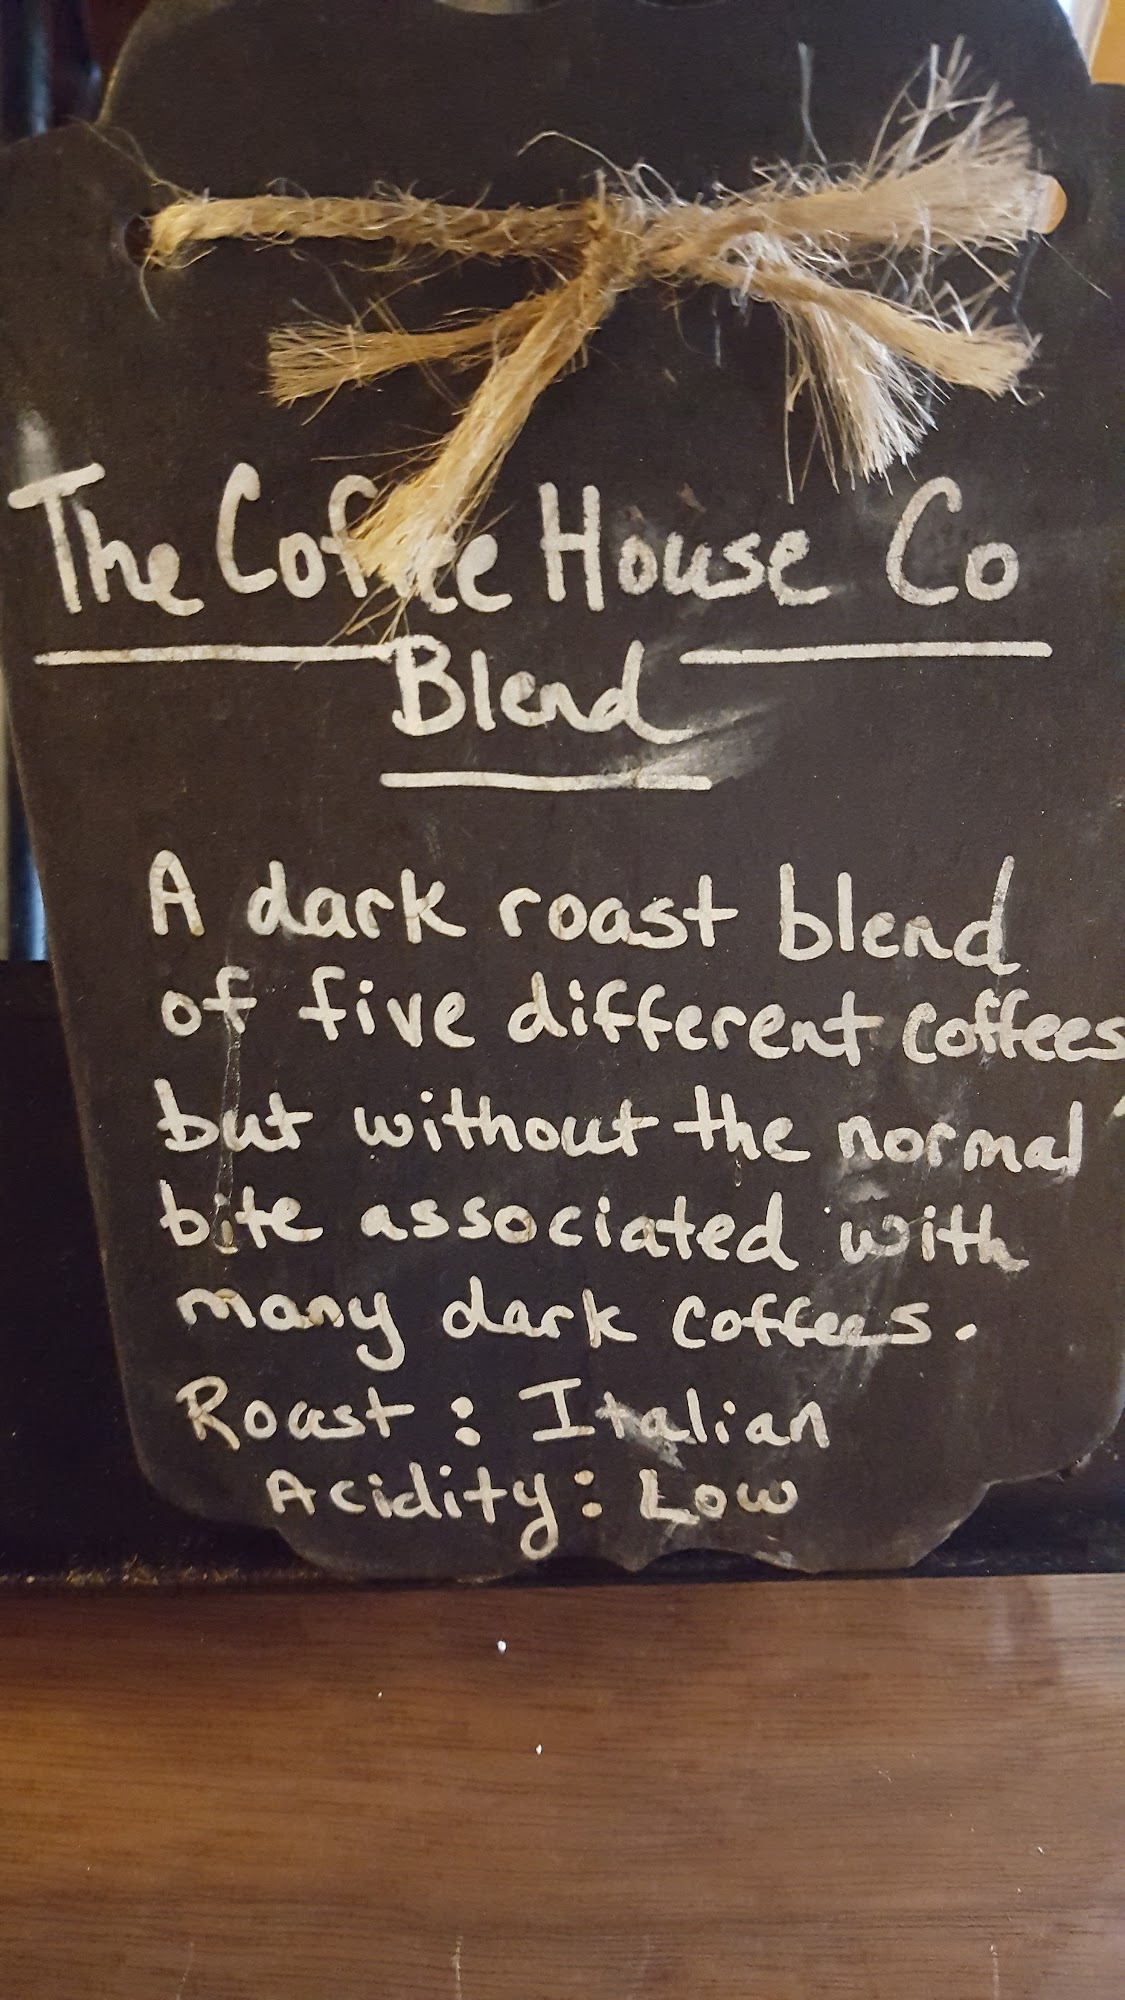 The Coffee House Co
Blend
A dark roast blend
of five different coffees
but without the normal
bite associated with
many dark coffees.
Roast : Italian
Acidity : Low